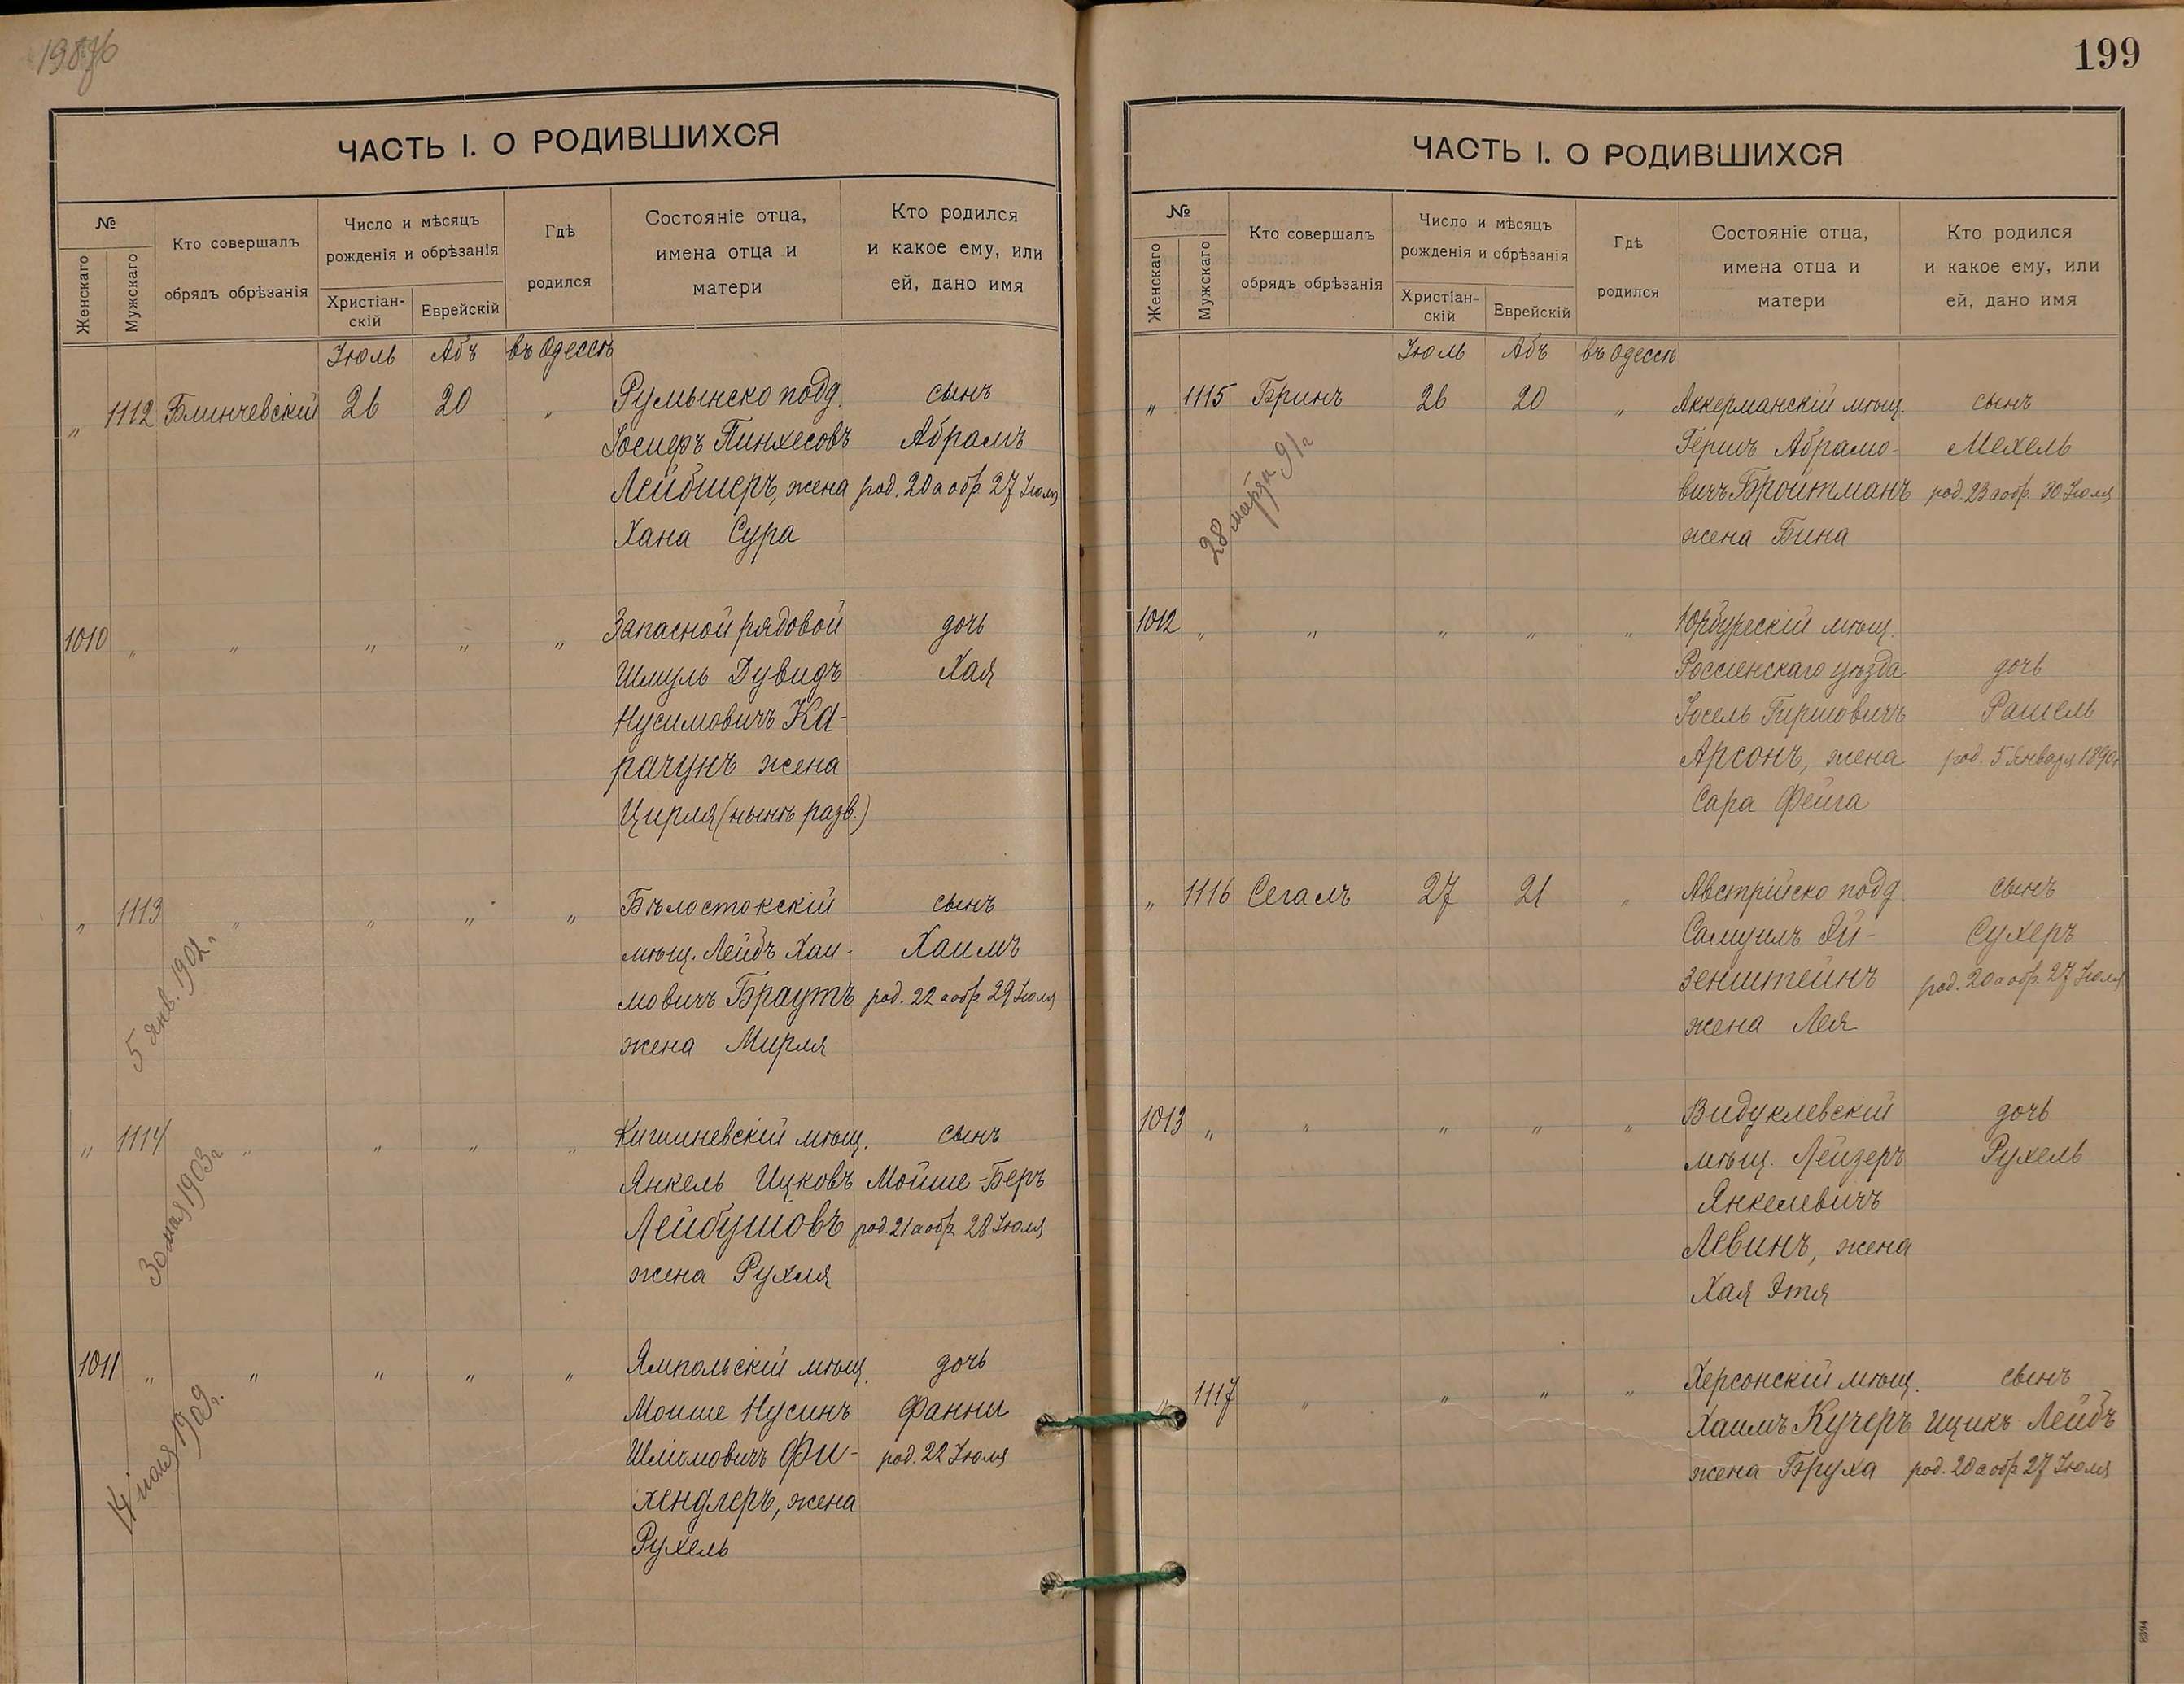 199
ЧАСТЬ I. О РОДИВШИХСЯ
№
Женскаго
Мужскаго
Кто совершалъ
обрядъ обрѣзанія
Число и мѣсяцъ
рожденія и обрѣзанія
Христіан-
скій
Еврейскій
Гдѣ
родился
Состояніе отца,
имена отца и
матери
Кто родился
и какое ему, или
ей, дано имя
Іюль Абъ въ Одессѣ
„ 1112 Блинчевскій 26 20 „ Румынско подд. сынъ
Іосифъ Пинхесовъ Абрамъ
Лейбшеръ, жена род. 20 а обр. 27 Іюля
Хана Сура
1010 „ „ „ „ „ Запасной рядовой дочь
Шмуль Дувидъ Хая
Нусимовичъ Ка-
рачунъ жена
Цирля (нынѣ разв.)
„ 1113 „ „ „ „ Бѣлостокскій сынъ
мѣщ. Лейбъ Хаи- Хаимъ
мовичъ Браутъ род. 22 а обр. 29 Іюля
жена Мирля
5 янв. 1902 г.
„ 1114 „ „ „ „ Кишиневскій мѣщ. сынъ
Янкель Ицковъ Мойше-Беръ
Лейбушовъ род. 21 а обр. 28 Іюля
жена Рухля
30 мая 1903 г.
1011 „ „ „ „ „ Ямпольскій мѣщ. дочь
Моише Нусинъ Фанни
Шліомовичъ Фи- род. 22 Іюля
хендлеръ, жена
Рухель
1909 г.
ЧАСТЬ I. О РОДИВШИХСЯ
№
Женскаго
Мужскаго
Кто совершалъ
обрядъ обрѣзанія
Число и мѣсяцъ
рожденія и обрѣзанія
Христіан-
скій
Еврейскій
Гдѣ
родился
Состояніе отца,
имена отца и
матери
Кто родился
и какое ему, или
ей, дано имя
Іюль Абъ въ Одессѣ
„ 1115 Бринъ 26 20 „ Аккерманскій мѣщ. сынъ
Гершъ Абрамо- Мехель
вичъ Бройтманъ род. 23 а обр. 30 Іюля
жена Бина
28 марта 91 г.
1012 „ „ „ „ „ Юрбурскій мѣщ.
Россіенскаго уѣзда дочь
Іосель Гиршовичъ Рашель
Арсонъ, жена род. 5 Января 1890 г.
Сара Фейга
„ 1116 Сегалъ 27 21 „ Австрійско подд. сынъ
Самуилъ Эй- Сухеръ
зенштейнъ род. 20 а обр. 27 Іюля
жена Лея
1013 „ „ „ „ „ Видуклевскій дочь
мѣщ. Лейзеръ Рухель
Янкелевичъ
Левинъ, жена
Хая Этя
„ 1117 „ „ „ „ Херсонскій мѣщ. сынъ
Хаимъ Кучеръ Ицикъ Лейбъ
жена Бруха род. 20 а обр. 27 Іюля